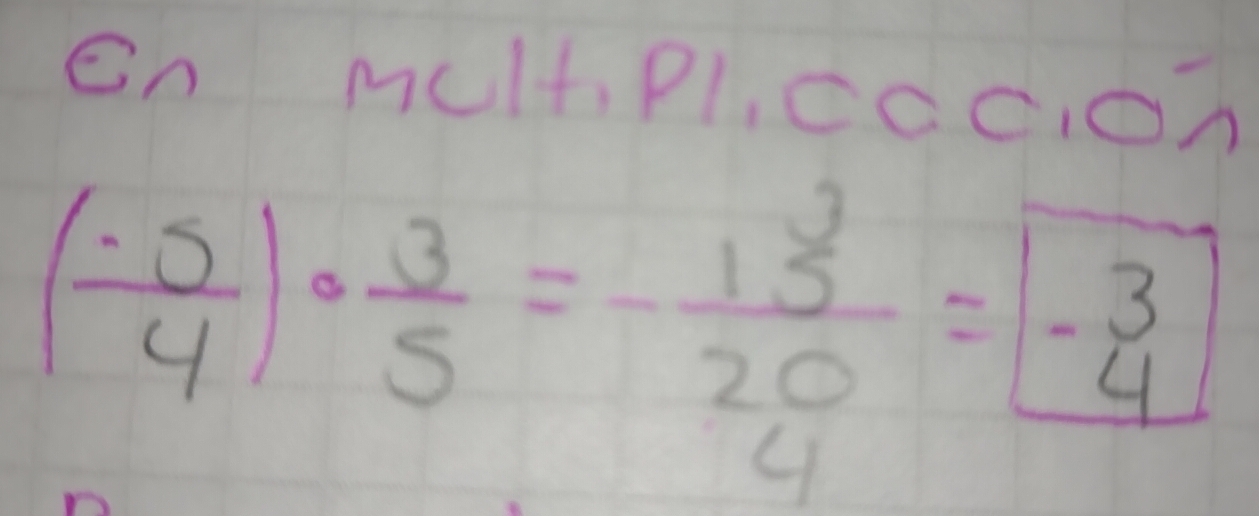 En multiplicación
(-5/4) • 3/5 = - 15/20 = - 3/4
3
4